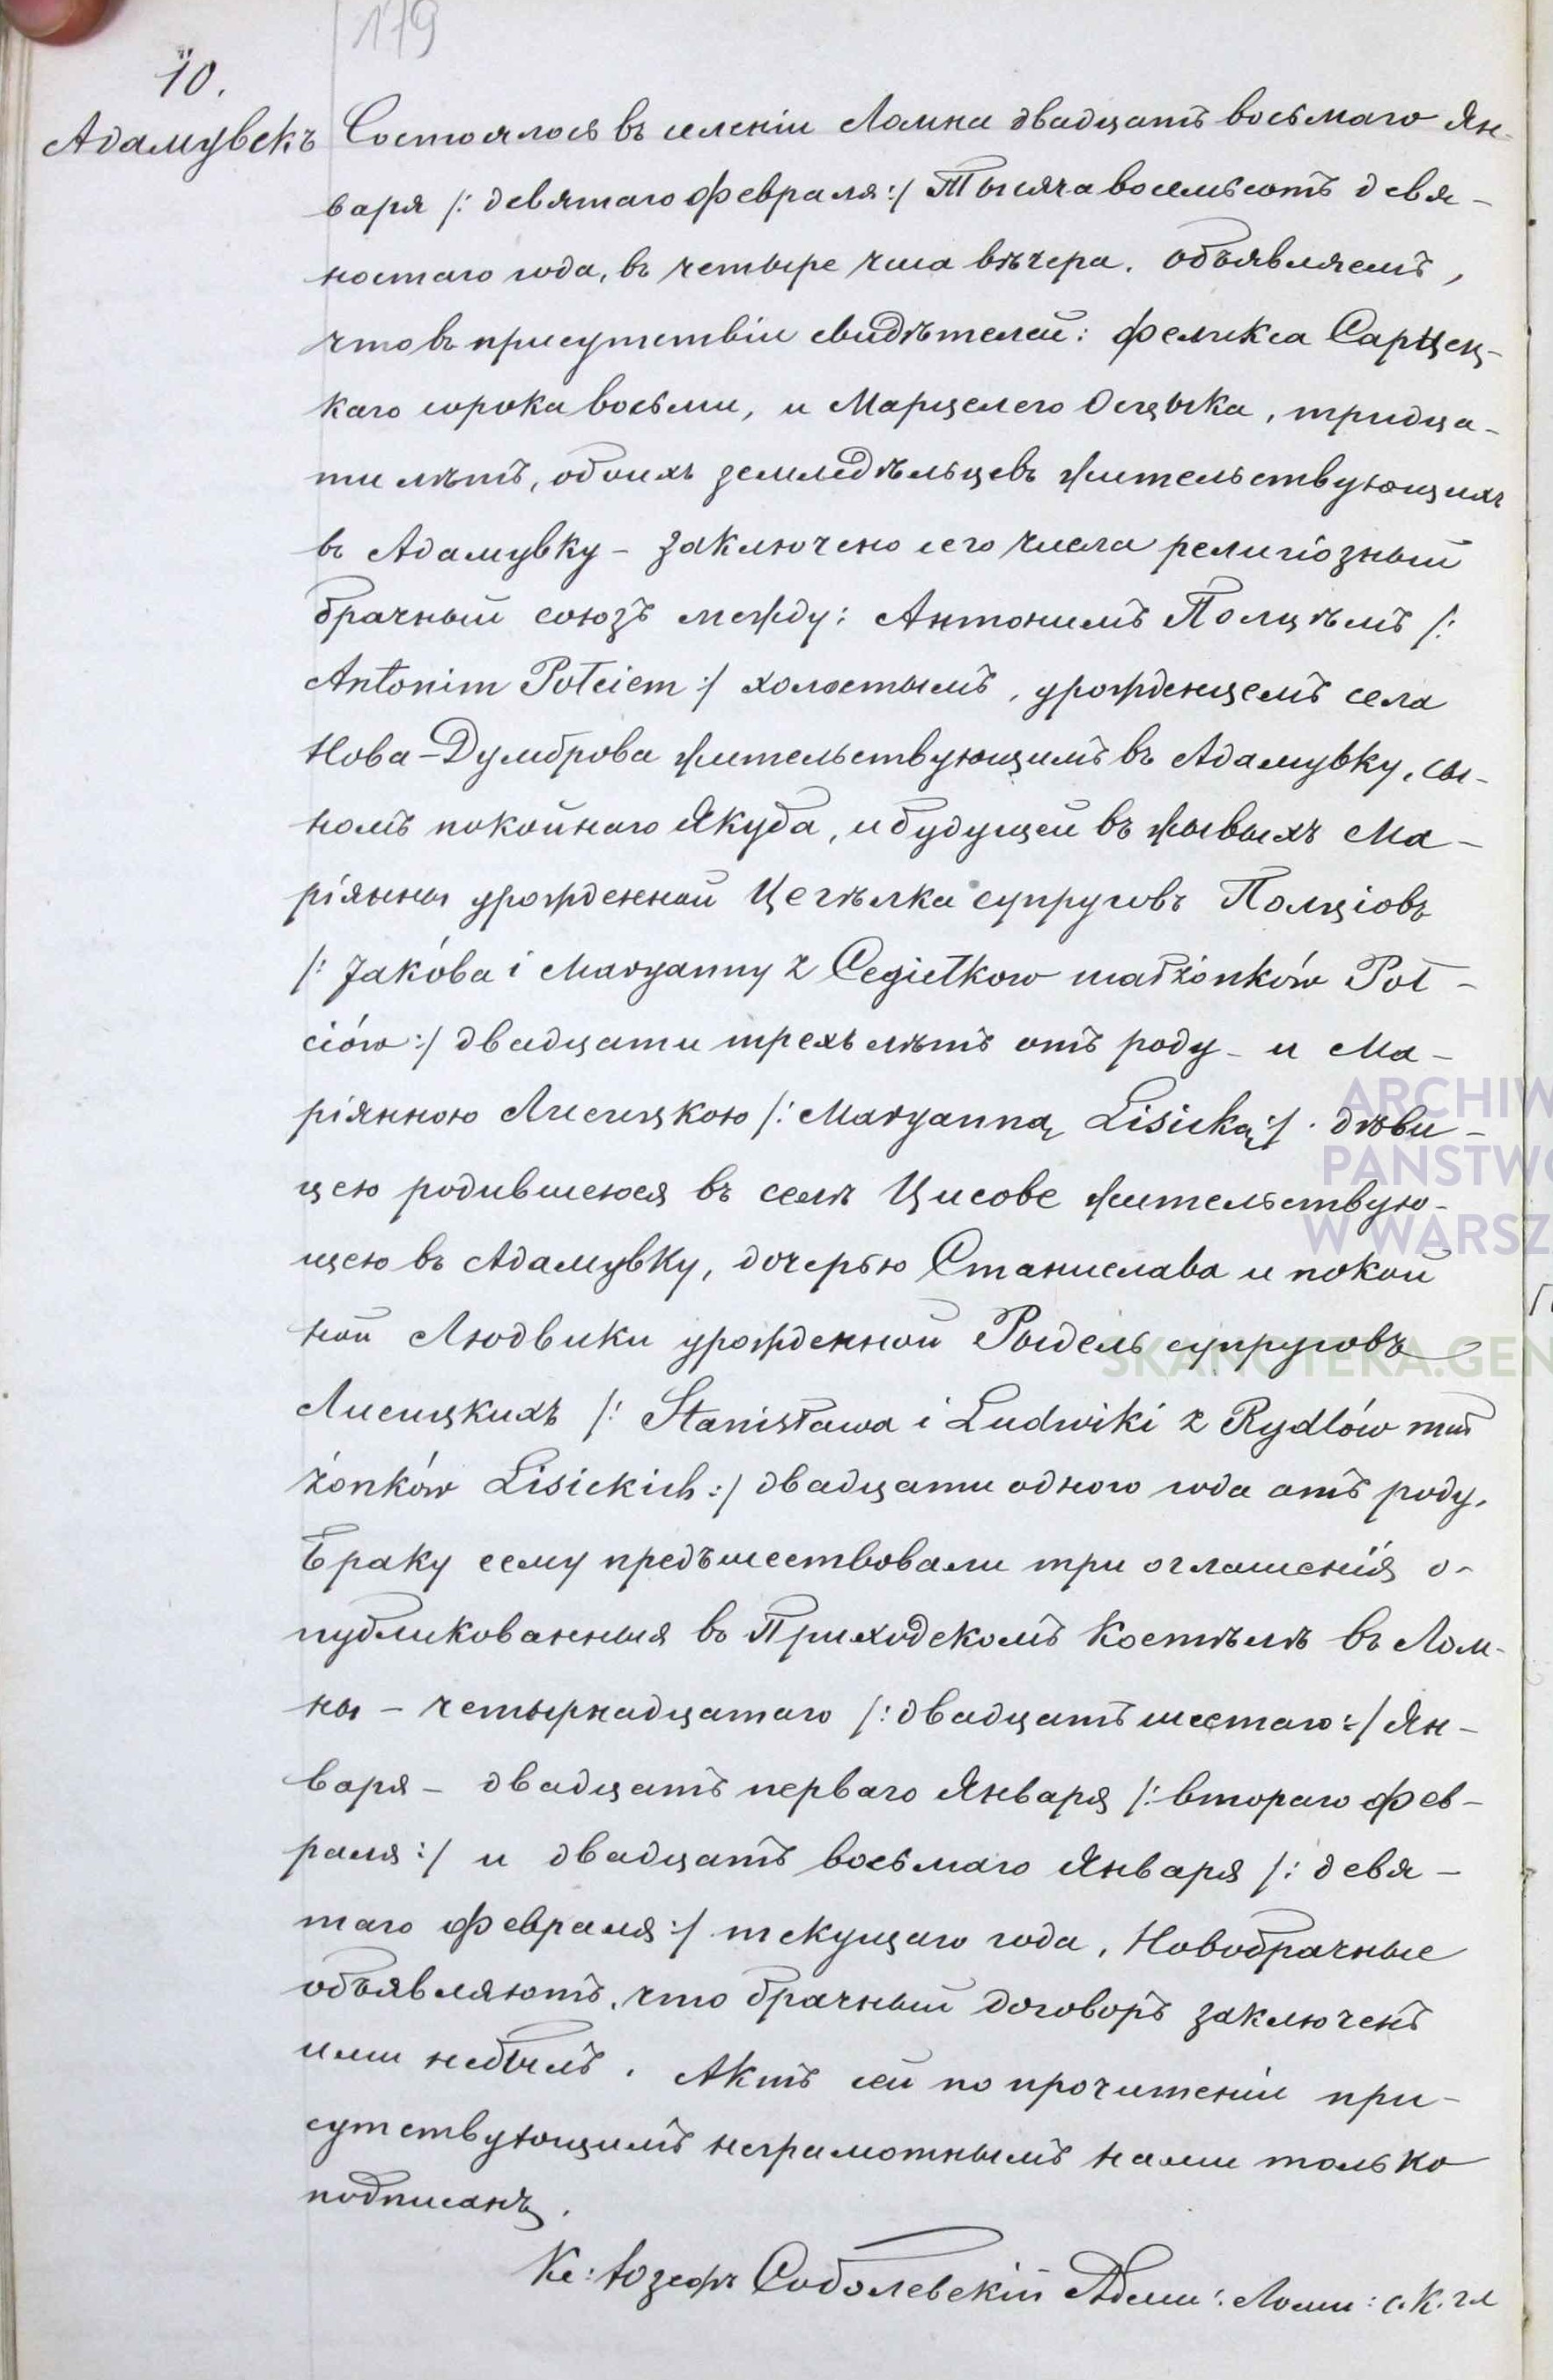 179
10.
Адамувекъ
Состоялось въ селеніи Ломна двадцать восьмаго Ян-
варя /: девятаго февраля :/ Тысяча восемьсотъ девя-
ностаго года, въ четыре часа вѣчера. Объявляемъ,
что въ присутствіи свидѣтелей: Феликса Сарцец-
каго сорока восьми, и Марцелего Осцыка, тридца-
ти лѣтъ, обоихъ земледѣльцевъ жительствующихъ
въ Адамувку – заключено сего числа религіозный
брачный союзъ между: Антонимъ Полцѣмъ /:
Antonim Połciem :/ холостымъ, урожденцемъ села
Нова-Думброва жительствующимъ въ Адамувку, сы-
номъ покойнаго Якуба, и будущей въ живыхъ Ма-
ріянны урожденной Цегѣлка супруговъ Полціовъ
/: Jakóba i Maryanny z Cegiełkow małżonków Poł-
ciów :/ двадцати трехъ лѣтъ отъ роду – и Ма-
ріянною Лисицкою /: Maryanną Lisicką :/ дѣви-
цею родившеюся въ селѣ Цисове жительствую-
щею въ Адамувку, дочерью Станислава и покой
ной Людвики урожденной Рыдель супруговъ
Лисицкихъ /: Stanisława i Ludwiki z Rydlów mał
żonków Lisickich :/ двадцати одного года отъ роду.
Браку сему предъшествовали три оглашенія о-
публикованныя въ Приходскомъ Костѣлѣ въ Лом-
ны – четырнадцатаго /: двадцать шестаго :/ Ян-
варя – двадцать перваго Января /: втораго фев-
раля :/ и двадцать восьмаго Января /: девя-
таго февраля :/ текущаго года. Новобрачные
объявляютъ, что брачный договоръ заключенъ
ими небылъ. Актъ сей по прочитеніи при-
сутствующимъ неграмотнымъ нами только
подписанъ.
Кс: Юзефъ Соболевскій Адми: Ломн: с. К. гл
ARCHIW
PAŃSTWO
W WARSZ
SKANOTEKA.GEN